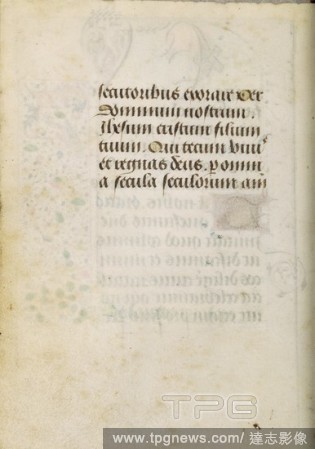 secutoribus exorare per
Dominum nostrum.
Jhesum cristum filium
tuum. Qui tecum viuit
et regnas deus. p omni
a secula seculorum am
TPG
www.tpgnews.com/ 達志影像